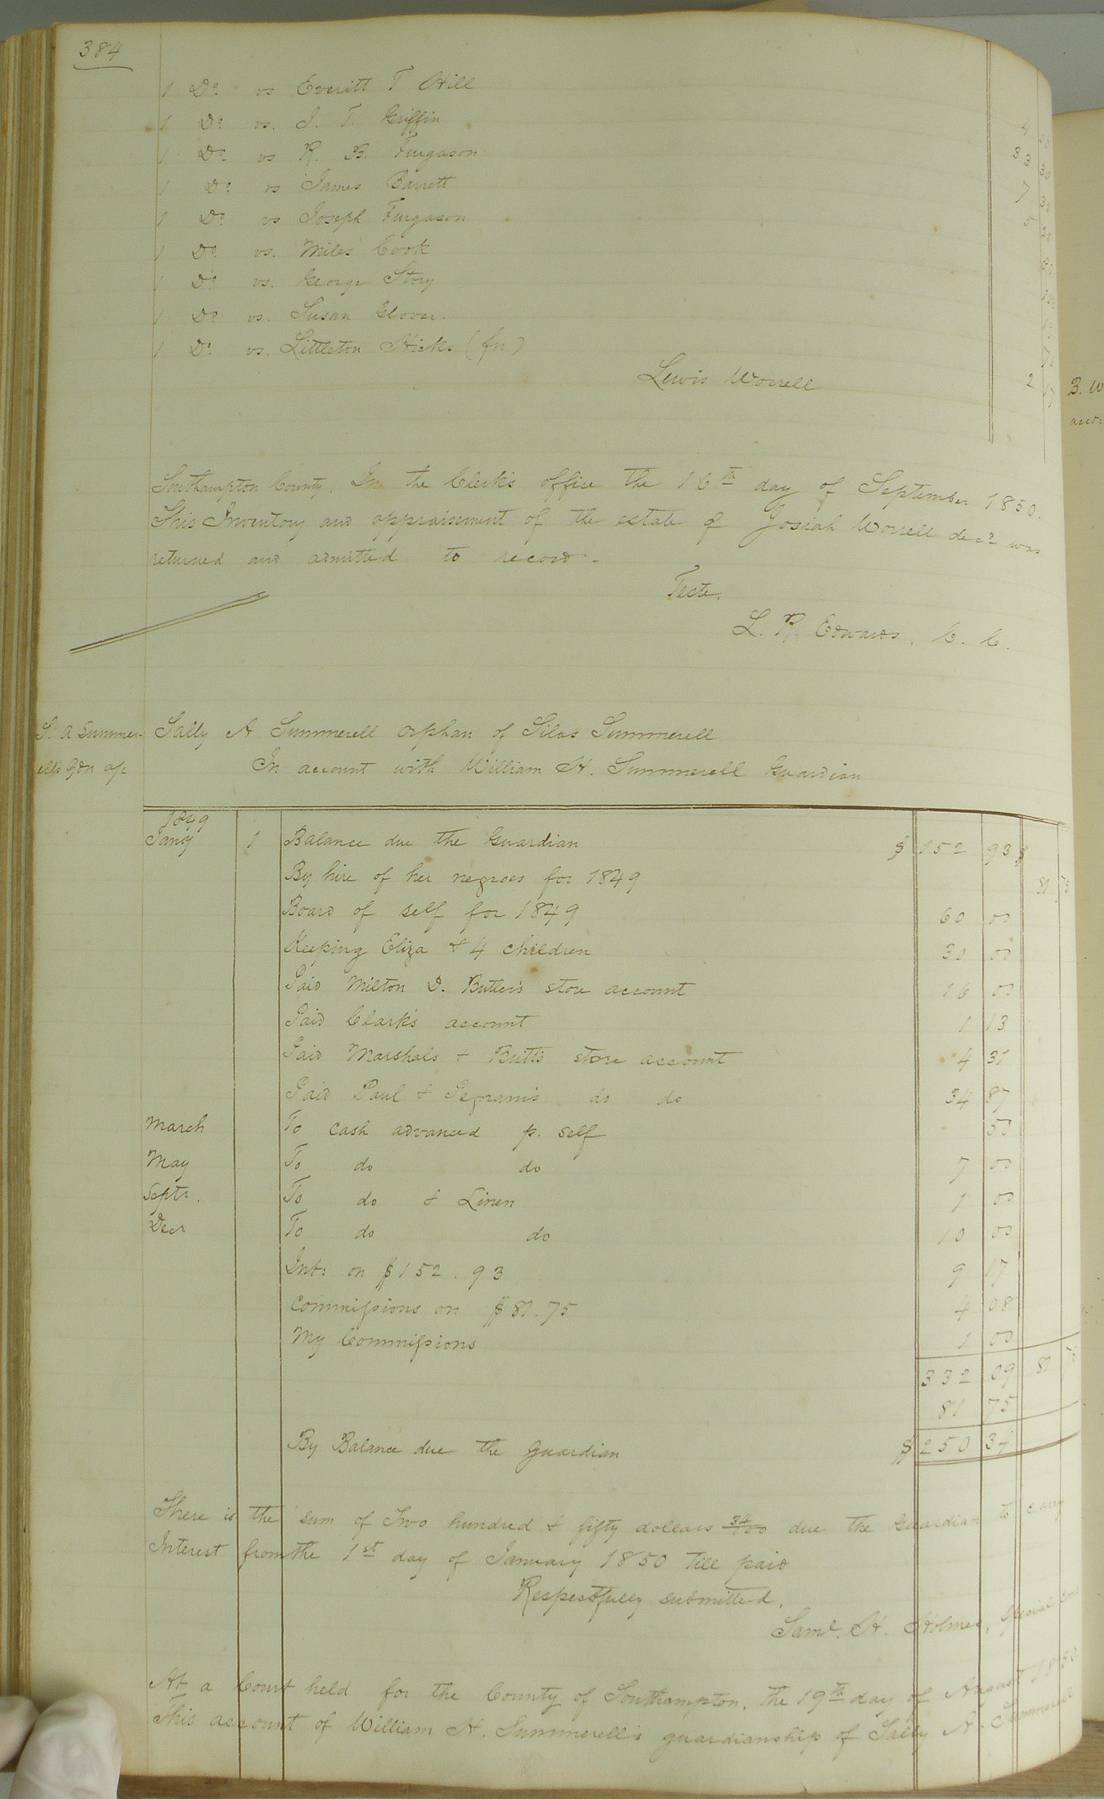 384
1 Do. vs Everitt T Hill
1 Do. vs. J. T. Griffin
1 Do. vs R. B. Furgason
1 Do. vs James Barrett
1 Do. vs Joseph Furgason
1 Do. vs. Miles Cook
1 Do. vs. George Story
1 Do. vs. Susan Glover.
1 Do. vs. Littleton Hicks (fn)
Lewis Worrell
Southampton County. In the Clerk's office the 16th day of September 1850.
This Inventory and appraisement of the estate of Josiah Worrell decd was
returned and admitted to record.
Teste.
L. R. Edwards, C. C.
S. A Summer-
ells Gdn a/c
Sally A Summerell orphan of Silas Summerell
In account with William H. Summerell Guardian
1849
Jany 1 Balance due the Guardian $ 152 93 $
By hire of her negroes for 1849 81 75
Board of self for 1849 60 00
Keeping Eliza & 4 children 30 00
Paid Milton D. Butler's store account 16 00
Paid Clark's account 1 13
Paid Marshals & Butts store account 4 31
Paid Paul & Pegram's do do 34 87
March To cash advanced p. self 50
May To do do 7 00
Septr. To do & Linen 1 00
Decr To do do 10 00
Intr. on $152.93 9 17
Commissions on $81.75 4 08
My Commissions 1 00
332 09 81 75
81 75
By Balance due the Guardian $ 250 34
There is the sum of Two hundred & fifty dollars 34/100 due the Guardian to carry
Interest from the 1st day of January 1850 till paid
Respectfully submitted,
Saml. H. Holmes, Special
At a Court held for the County of Southampton, the 19th day of August 1850.
This account of William H. Summerell's guardianship of Sally A. Summerell